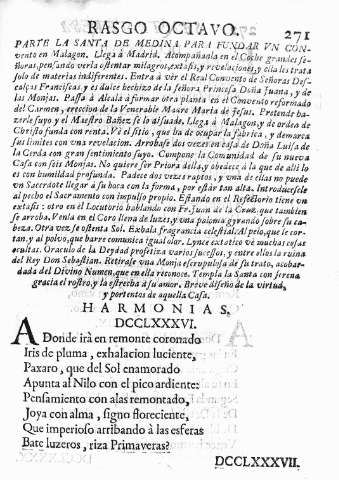 RASGO OCTAVO. 271
PARTE LA SANTA DE MEDINA PARA FUNDAR VN CON-
vento en Malagon. Llega à Madrid. Acompañanla en el Coche grandes se-
ñoras, pensando verla ostentar milagros, extasis, y revelaciones, y ella les trata
solo de materias indiferentes. Entra à vèr el Real Convento de Señoras Des-
calças Franciscas, y es dulce hechizo de la señora Princesa Doña Juana, y de
las Monjas. Passa à Alcalà à formar otra planta en el Convento reformado
del Carmen, ereccion de la Venerable Madre Maria de Jesus. Pretende ha-
zerle suyo y el Maestro Bañez se lo disuade. Llega à Malagon, y de orden de
Christo funda con renta. Và el sitio, que ha de ocupar la fabrica, y demarca
sus limites con vna revelacion. Arrobase dos vezes en casa de Doña Luisa de
la Cerda con gran sentimiento suyo. Compone la Comunidad de su nueva
Casa con seis Monjas. No quiere ser Priora della, y obedece à la que de alli lo
es con humildad profunda. Padece dos vezes raptos, y vna de ellas no puede
vn Sacerdote llegar à su boca con la forma, por estàr tan alta. Introducesele
al pecho el Sacramento con impulso propio. Estando en el Refectorio tiene vn
extasis: otro en el Locutorio hablando con Fr. Juan de la Cruz, que tambien
se arroba. Venla en el Coro llena de luzes, y vna paloma gyrando sobre su ca-
beza. Otra vez se ostenta Sol. Exbala fragrancia celestial: Al pelo, que le cor-
tan, y al polvo, que barre comunica igual olor. Lynce extatico vè muchas cosas
ocultas. Oraculo de la Deydad profetiza varios sucessos, y entre ellos la ruina
del Rey Don Sebastian. Retirase vna Monja escrupulosa de su trato, acobar-
dada del Divino Numen, que en ella reconoce. Templa la Santa con serena
gracia el rostro, y la estrecha à su amor. Breve diseño de la virtud,
y portentos de aquella Casa.
HARMONIAS.
DCCLXXXVI.
ADonde irà en remonte coronado
Iris de pluma, exhalacion luciente,
Paxaro, que del Sol enamorado
Apunta al Nilo con el pico ardiente:
Pensamiento con alas remontado,
Joya con alma, signo floreciente,
Que imperioso arribando à las esferas
Bate luzeros, riza Primaveras?
DCCLXXXVII.